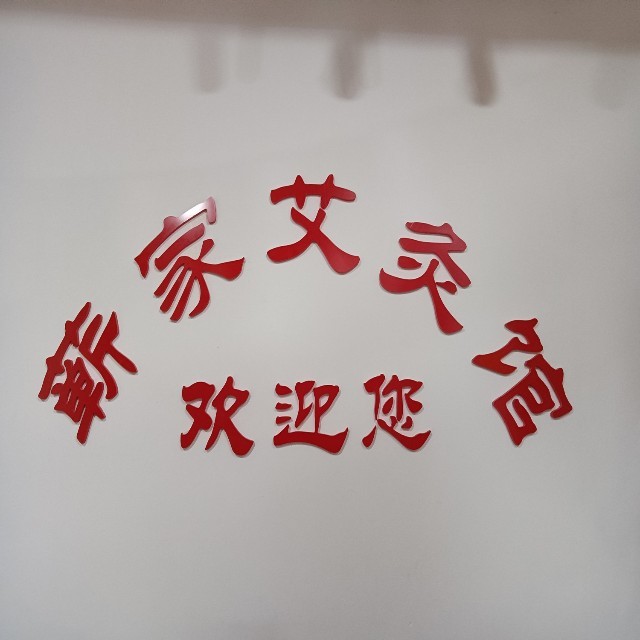 蕲家艾灸馆
欢迎您